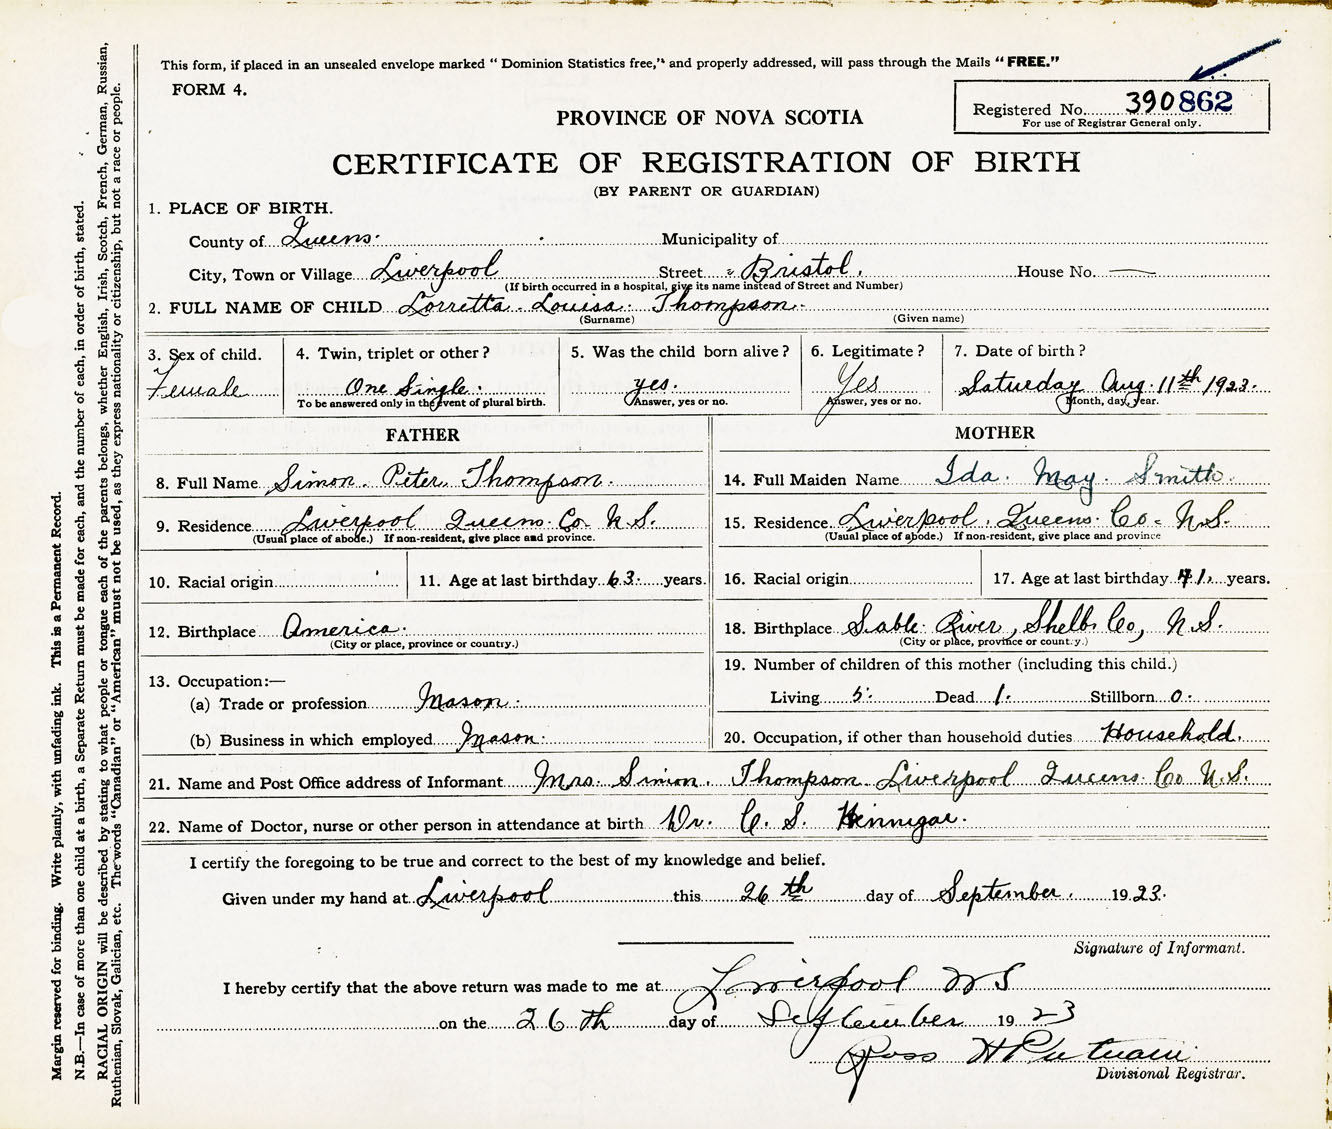 This form, if placed in an unsealed envelope marked "Dominion Statistics free," and properly addressed, will pass through the Mails "FREE."
FORM 4.
Registered No. 390862
For use of Registrar General only.
PROVINCE OF NOVA SCOTIA
CERTIFICATE OF REGISTRATION OF BIRTH
(BY PARENT OR GUARDIAN)
1. PLACE OF BIRTH.
County of Queens. Municipality of
City, Town or Village Liverpool Street Bristol. House No. —
(If birth occurred in a hospital, give its name instead of Street and Number)
2. FULL NAME OF CHILD Lorretta Louisa Thompson
(Surname) (Given name)
3. Sex of child. 4. Twin, triplet or other? 5. Was the child born alive? 6. Legitimate? 7. Date of birth?
Female One Single. yes. Yes Saturday Aug. 11th 1923.
To be answered only in the event of plural birth. Answer, yes or no. Answer, yes or no. Month, day, year.
FATHER MOTHER
8. Full Name Simon Peter Thompson. 14. Full Maiden Name Ida May Smith.
9. Residence Liverpool Queens Co N.S. 15. Residence Liverpool, Queens Co N.S.
(Usual place of abode.) If non-resident, give place and province. (Usual place of abode.) If non-resident, give place and province
10. Racial origin 11. Age at last birthday 63 years. 16. Racial origin 17. Age at last birthday 41 years.
12. Birthplace America. 18. Birthplace Sable River, Shelb. Co, N.S.
(City or place, province or country.) (City or place, province or country.)
19. Number of children of this mother (including this child.)
13. Occupation:—
(a) Trade or profession Mason. Living 5. Dead 1. Stillborn 0.
(b) Business in which employed Mason. 20. Occupation, if other than household duties Household.
21. Name and Post Office address of Informant Mrs. Simon Thompson Liverpool Queens Co N.S.
22. Name of Doctor, nurse or other person in attendance at birth Dr. C. S. Hennigar.
I certify the foregoing to be true and correct to the best of my knowledge and belief.
Given under my hand at Liverpool this 26th day of September 1923.
Signature of Informant.
I hereby certify that the above return was made to me at Liverpool N S
on the 26th day of September 1923
Ross H Putnam
Divisional Registrar.
Margin reserved for binding. Write plainly, with unfading ink. This is a Permanent Record.
N.B.—In case of more than one child at a birth, a Separate Return must be made for each, and the number of each, in order of birth, stated.
RACIAL ORIGIN will be described by stating to what people or tongue each of the parents belongs, whether English, Irish, Scotch, French, German, Russian,
Ruthenian, Slovak, Galician, etc. The words "Canadian" or "American" must not be used, as they express nationality or citizenship, but not a race or people.